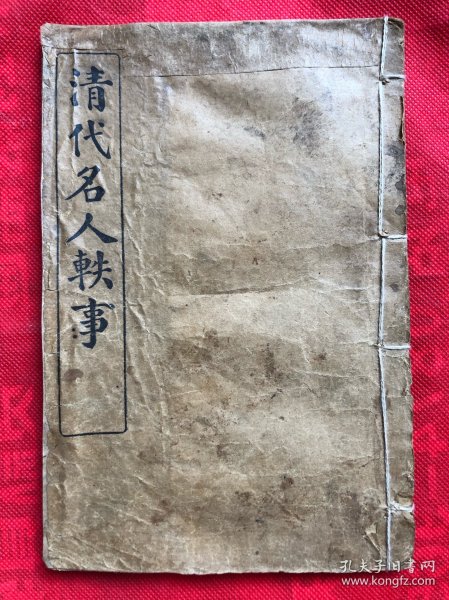 清代名人軼事
孔夫子旧书网
www.kongfz.com